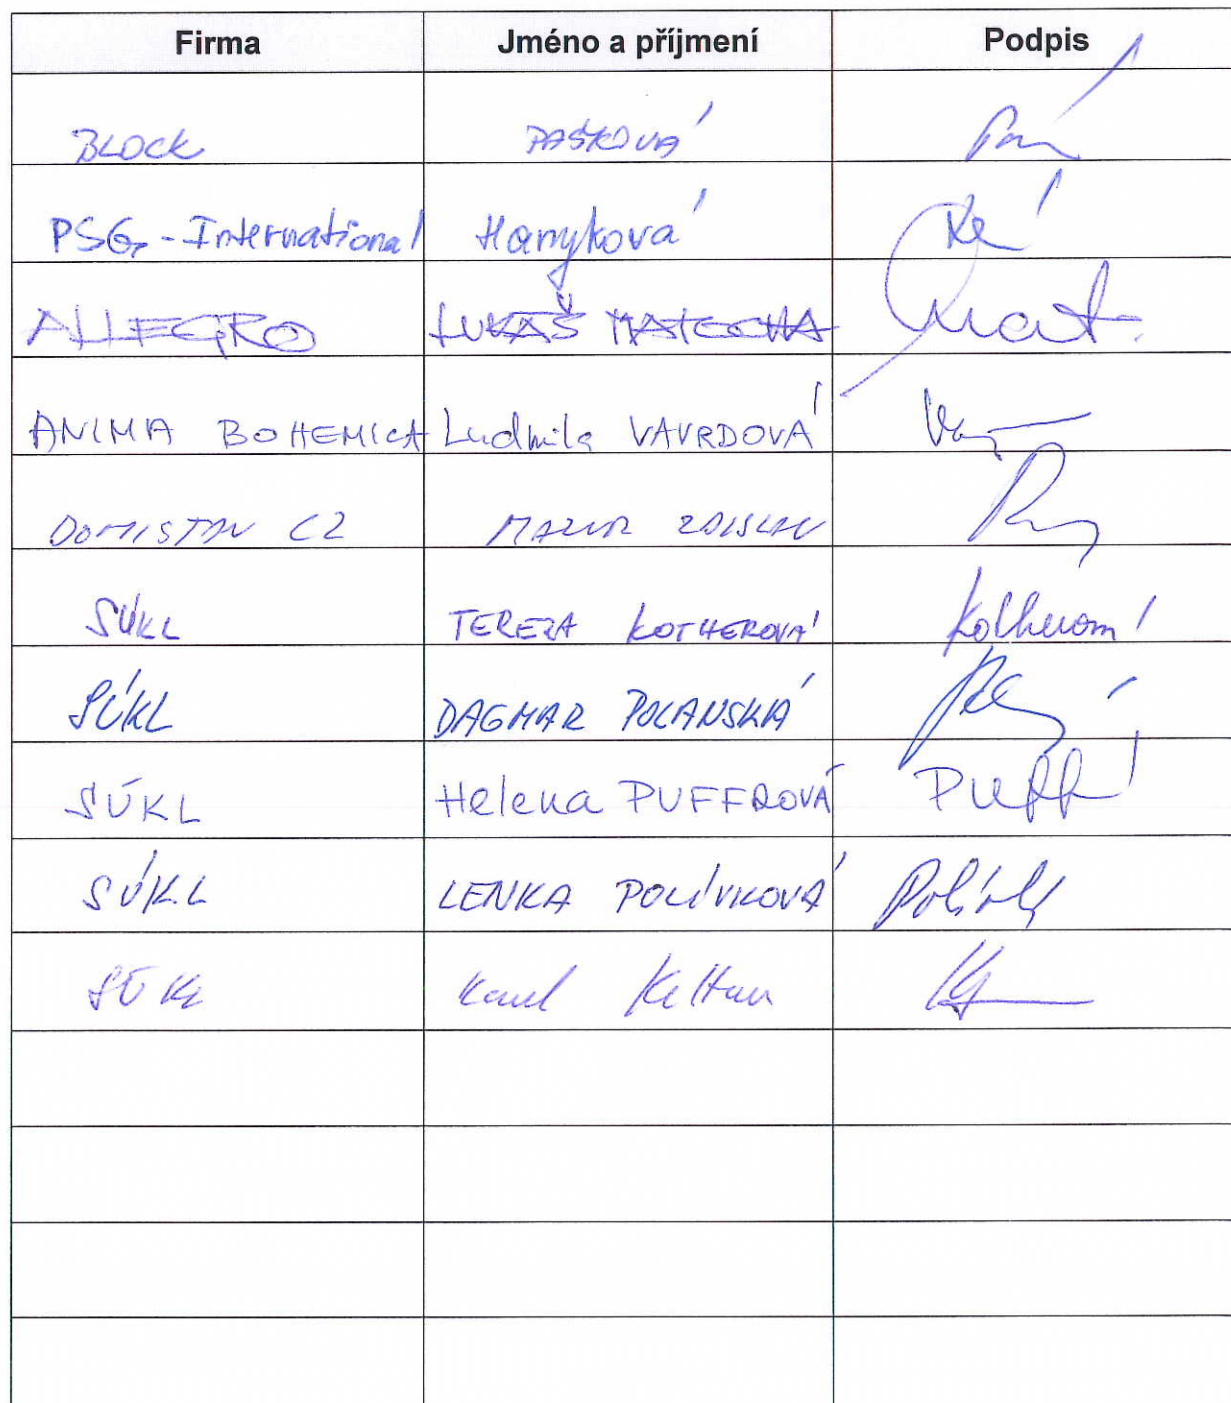 Firma Jméno a příjmení Podpis
BLOCK PAŠKOVÁ
PSG-International Hanyková
ALLEGRO LUKÁŠ MATOCHA
ANIMA BOHEMICA Ludmila VAVRDOVÁ
DOMISTAV CZ MAZUR ZDISLAV
SÚKL TEREZA KOTHEROVÁ
SÚKL DAGMAR POLANSKÁ
SÚKL Helena PUFFROVÁ Puff
SÚKL LENKA POLÍVKOVÁ
SÚKL Karel